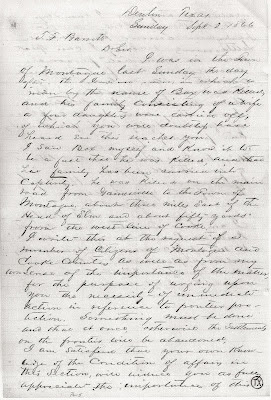 Denton Texas
Sunday Sept 2 1866
J. T. Barrett
D Sir
I was in the Town
of Montague last Sunday the day
after the Indian in which a
man by the name of Box was Killed
and his family Consisting of a wife
& four daughters were carried off,
of which you were doubtless have
heard ere this reaches you
I saw Box myself and know it to
be a fact that he was Killed and that
his family has been carried into
Captivity he was Killed on the main
road from Gainsville to the Town of
Montague about three miles East of the
Head of Elm and about fifty yards
from the west line of Cooke
I write this at the request of a
number of Citizens of Montague and
Cooke Counties as well as from my
own Sense of the importance of the matter
for the purpose of urging upon
you the necessity of immediate
action in reference to frontier pro-
tection Something must be done
and that at once otherwise the Settlements
on the frontier will be abandoned.
I am Satisfied that your own Know-
ledge of the Condition of affairs in
this Section, will induce you to fully
appreciate the importance of this